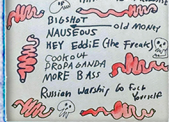 BIGSHOT
NAUSEOUS old Money
HEY Eddie (the Freak)
COOKOUT
PROPAGANDA
MORE BASS
Russian Warship Go Fuck
Yourself